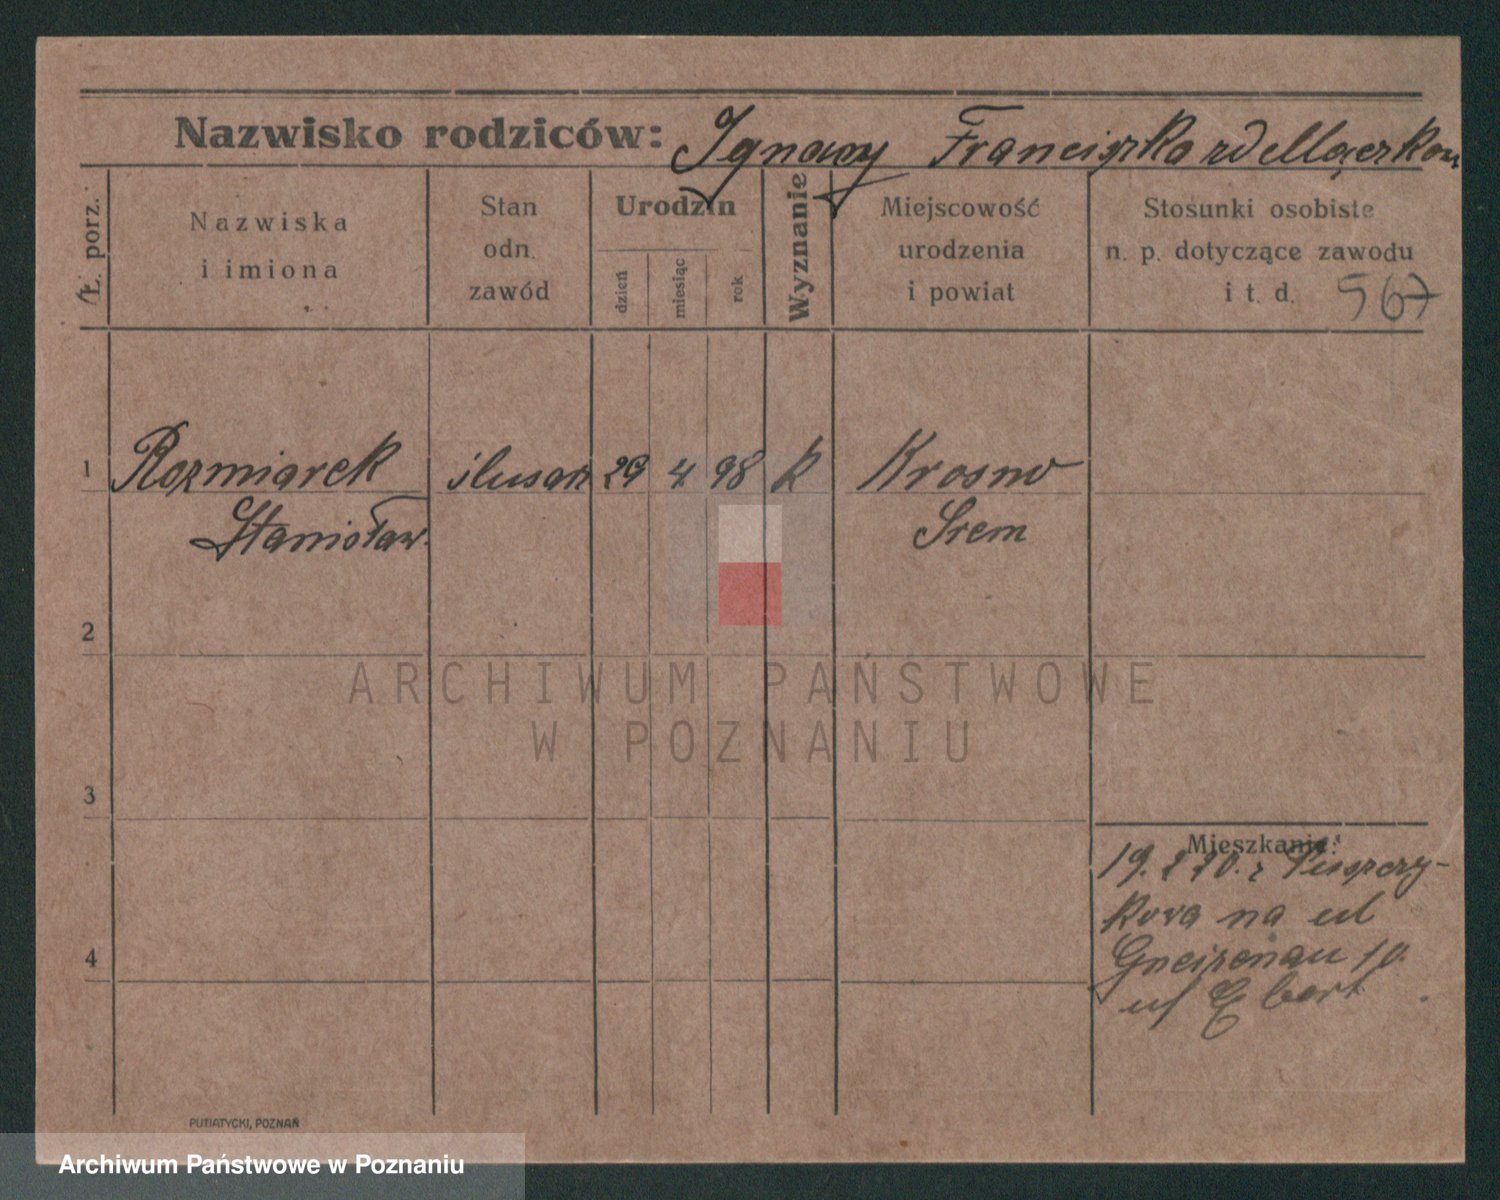 Nazwisko rodziców: Ignacy Franciszka zd Mączkow
Ł. porz.
Nazwiska
i imiona
Stan
odn.
zawód
Urodzin
dzień
miesiąc
rok
Wyznanie
Miejscowość
urodzenia
i powiat
Stosunki osobiste
n. p. dotyczące zawodu
i t. d. 567
1 Rozmiarek ślusarz 29 4 98 k Krosno
Stanisław. Śrem
2
ARCHIWUM PAŃSTWOWE
W POZNANIU
3
Mieszkanie:
19. 20. z
kowa na ul
4
Gneisenau 10.
ul Ebert
PUTIATYCKI, POZNAŃ
Archiwum Państwowe w Poznaniu